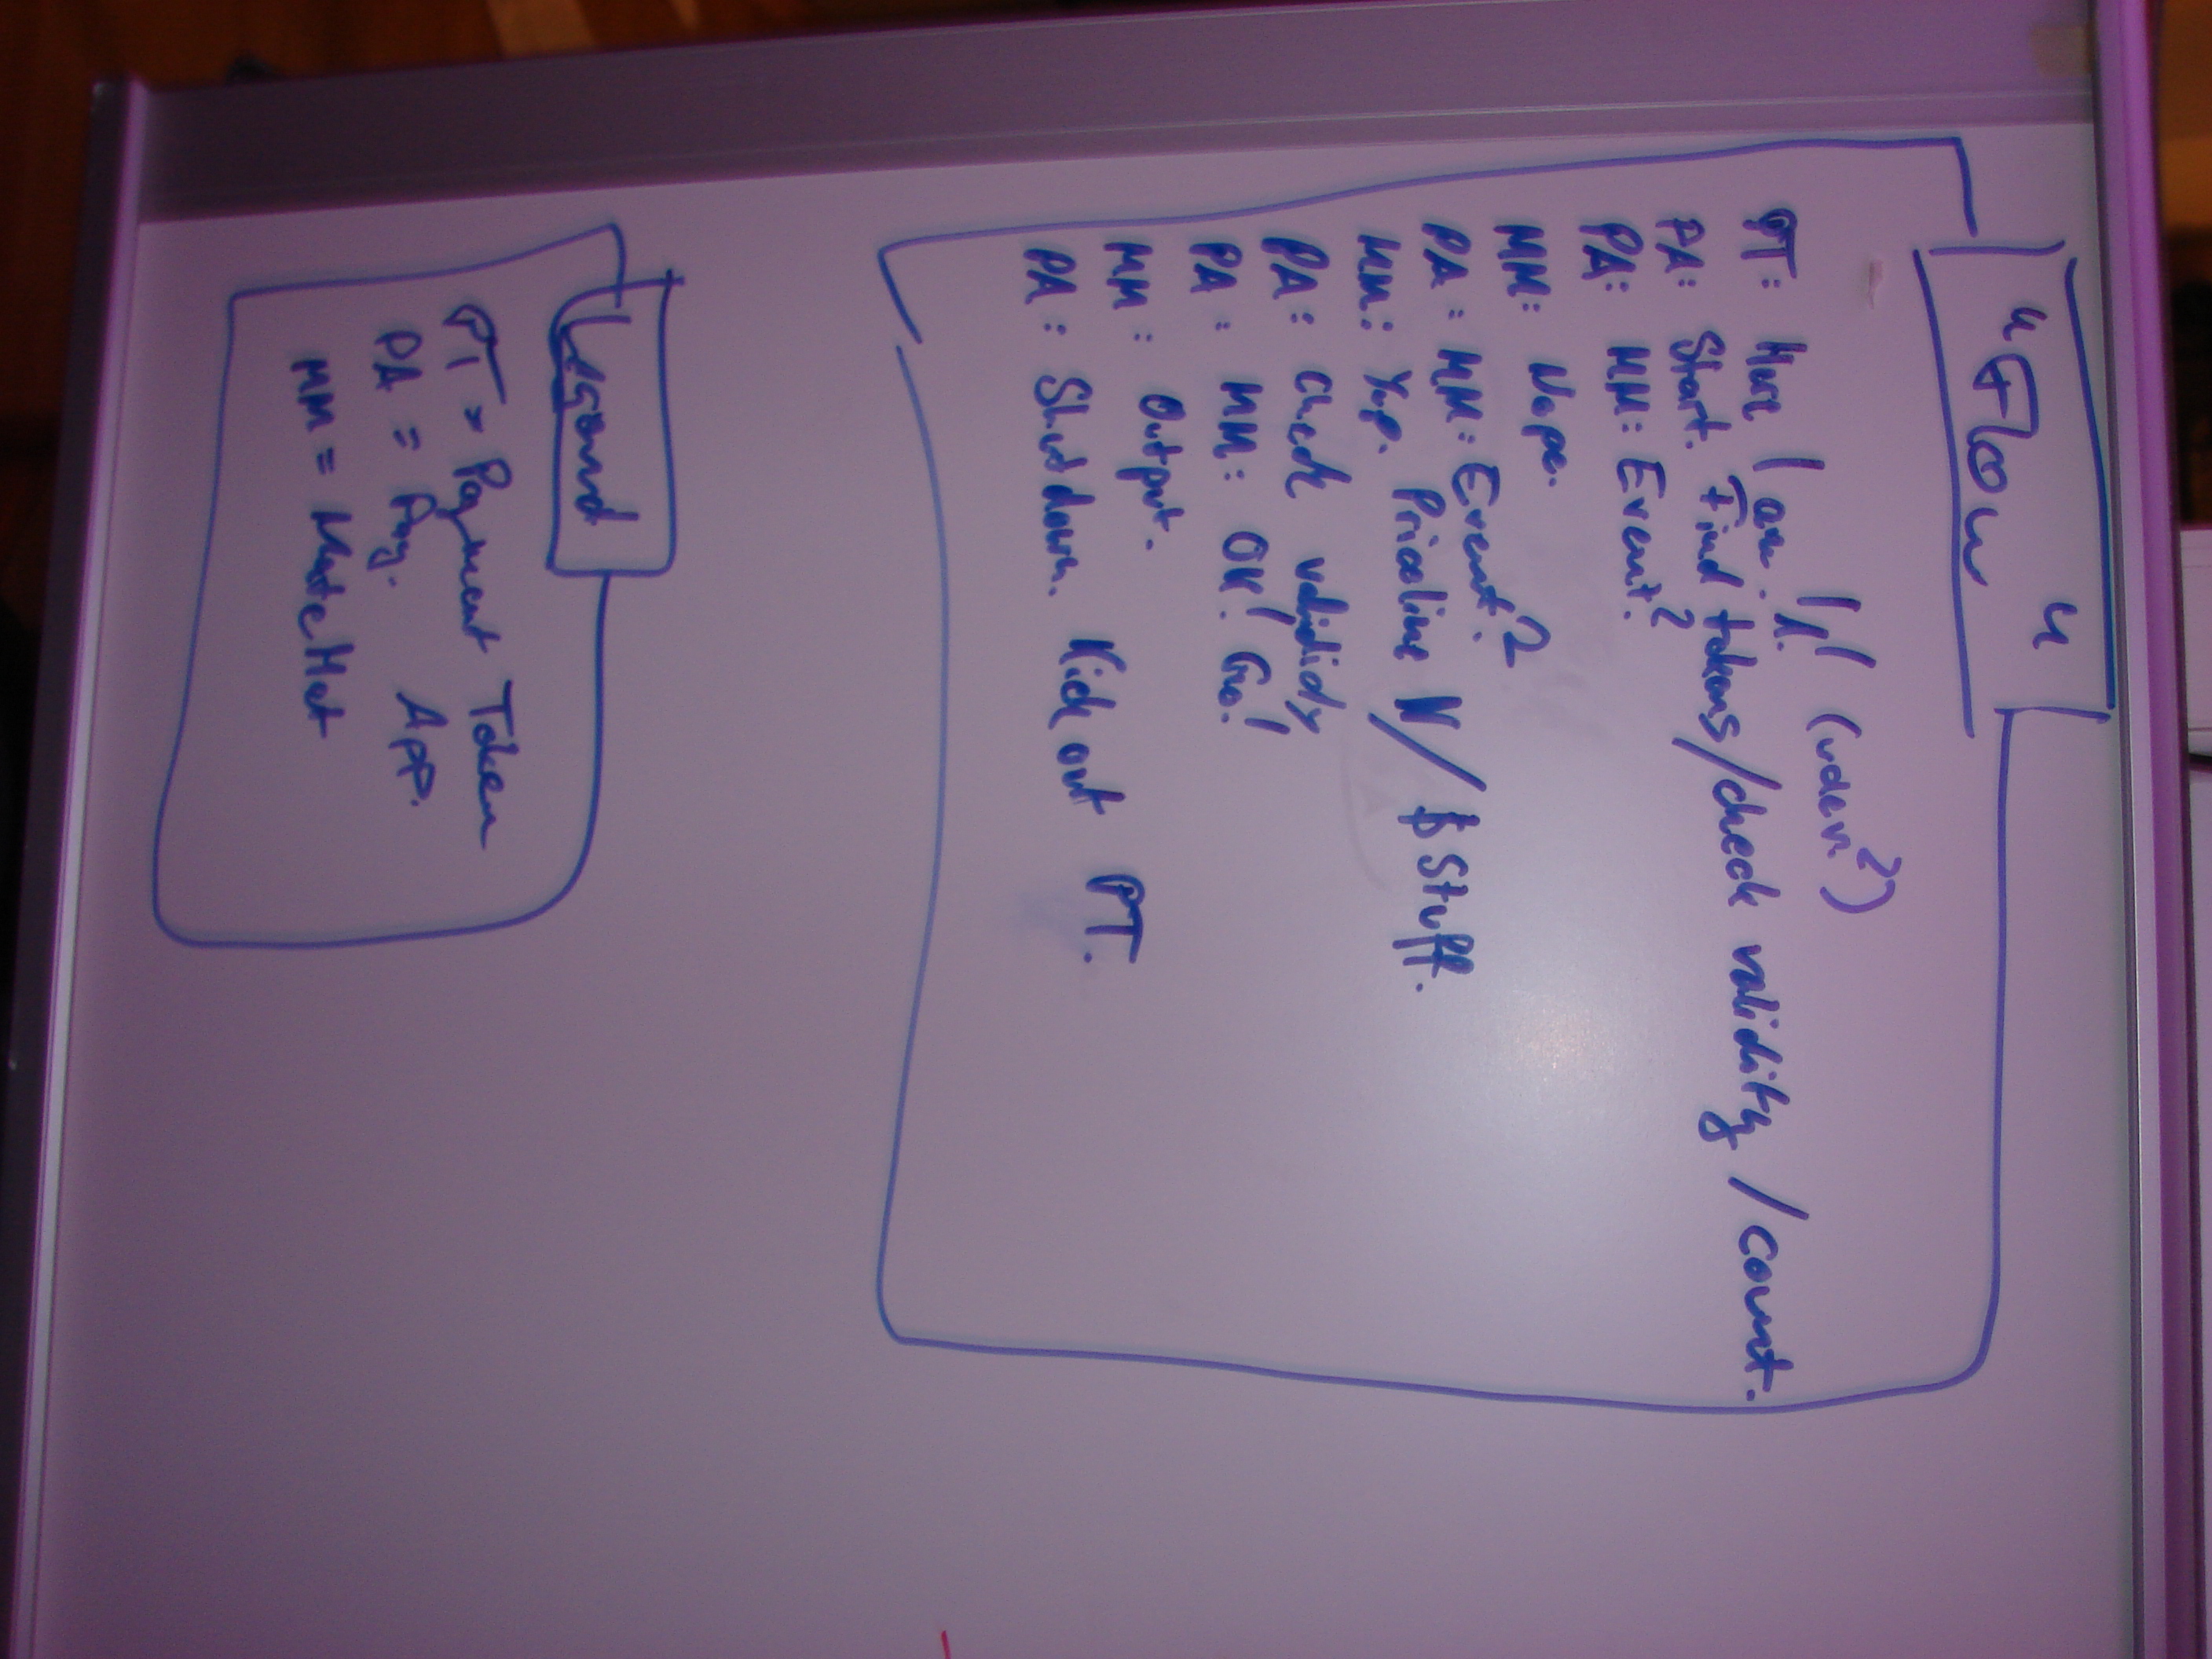 "Flow"
PT: Here I am. (when?)
PA: Start. Find tokens/check validity/count.
PA: MM: Event?
MM: Nope.
PA: MM: Event?
MM: Yup. Priceline N/$ stuff.
PA: Check validity
PA: MM: OK! Go!
MM: Output.
PA: Shutdown. Kick out PT.
Legend
PT = Payment Token
PA = Pay. App.
MM =